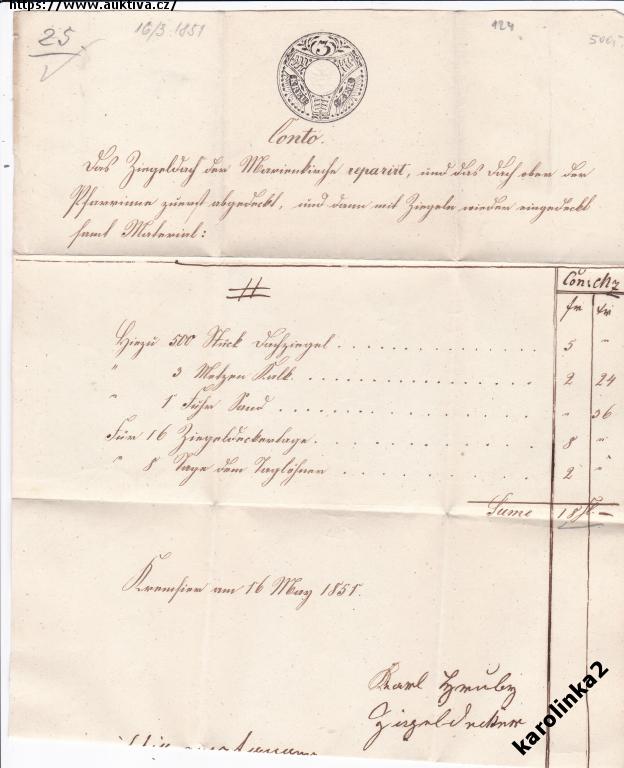 https://www.auktiva.cz/
25
16/3 1851
124
500,-
3
Conto.
Das Ziegeldach der Marienkirche reparirt, und das Dach ober der
Pfarrinne zuerst abgedeckt, und dann mit Ziegeln wieder eingedeckt
samt Material:
fr kr
Hiezu 500 Stück Dachziegel . . . . . . . . . . . . . . 5 "
" 3 Metzen Kalk . . . . . . . . . . . . . . . 2 24
" 1 Fuhr Sand . . . . . . . . . . . . . . . . " 36
Für 16 Ziegeldeckertage . . . . . . . . . . . . . . . 8 "
" 8 Tage dem Taglöhner . . . . . . . . . . . . . . 2 "
Sume 18 fl. –
Kremsier am 16 May 1851.
Karl Hruby
Ziegeldecker
karolinka2